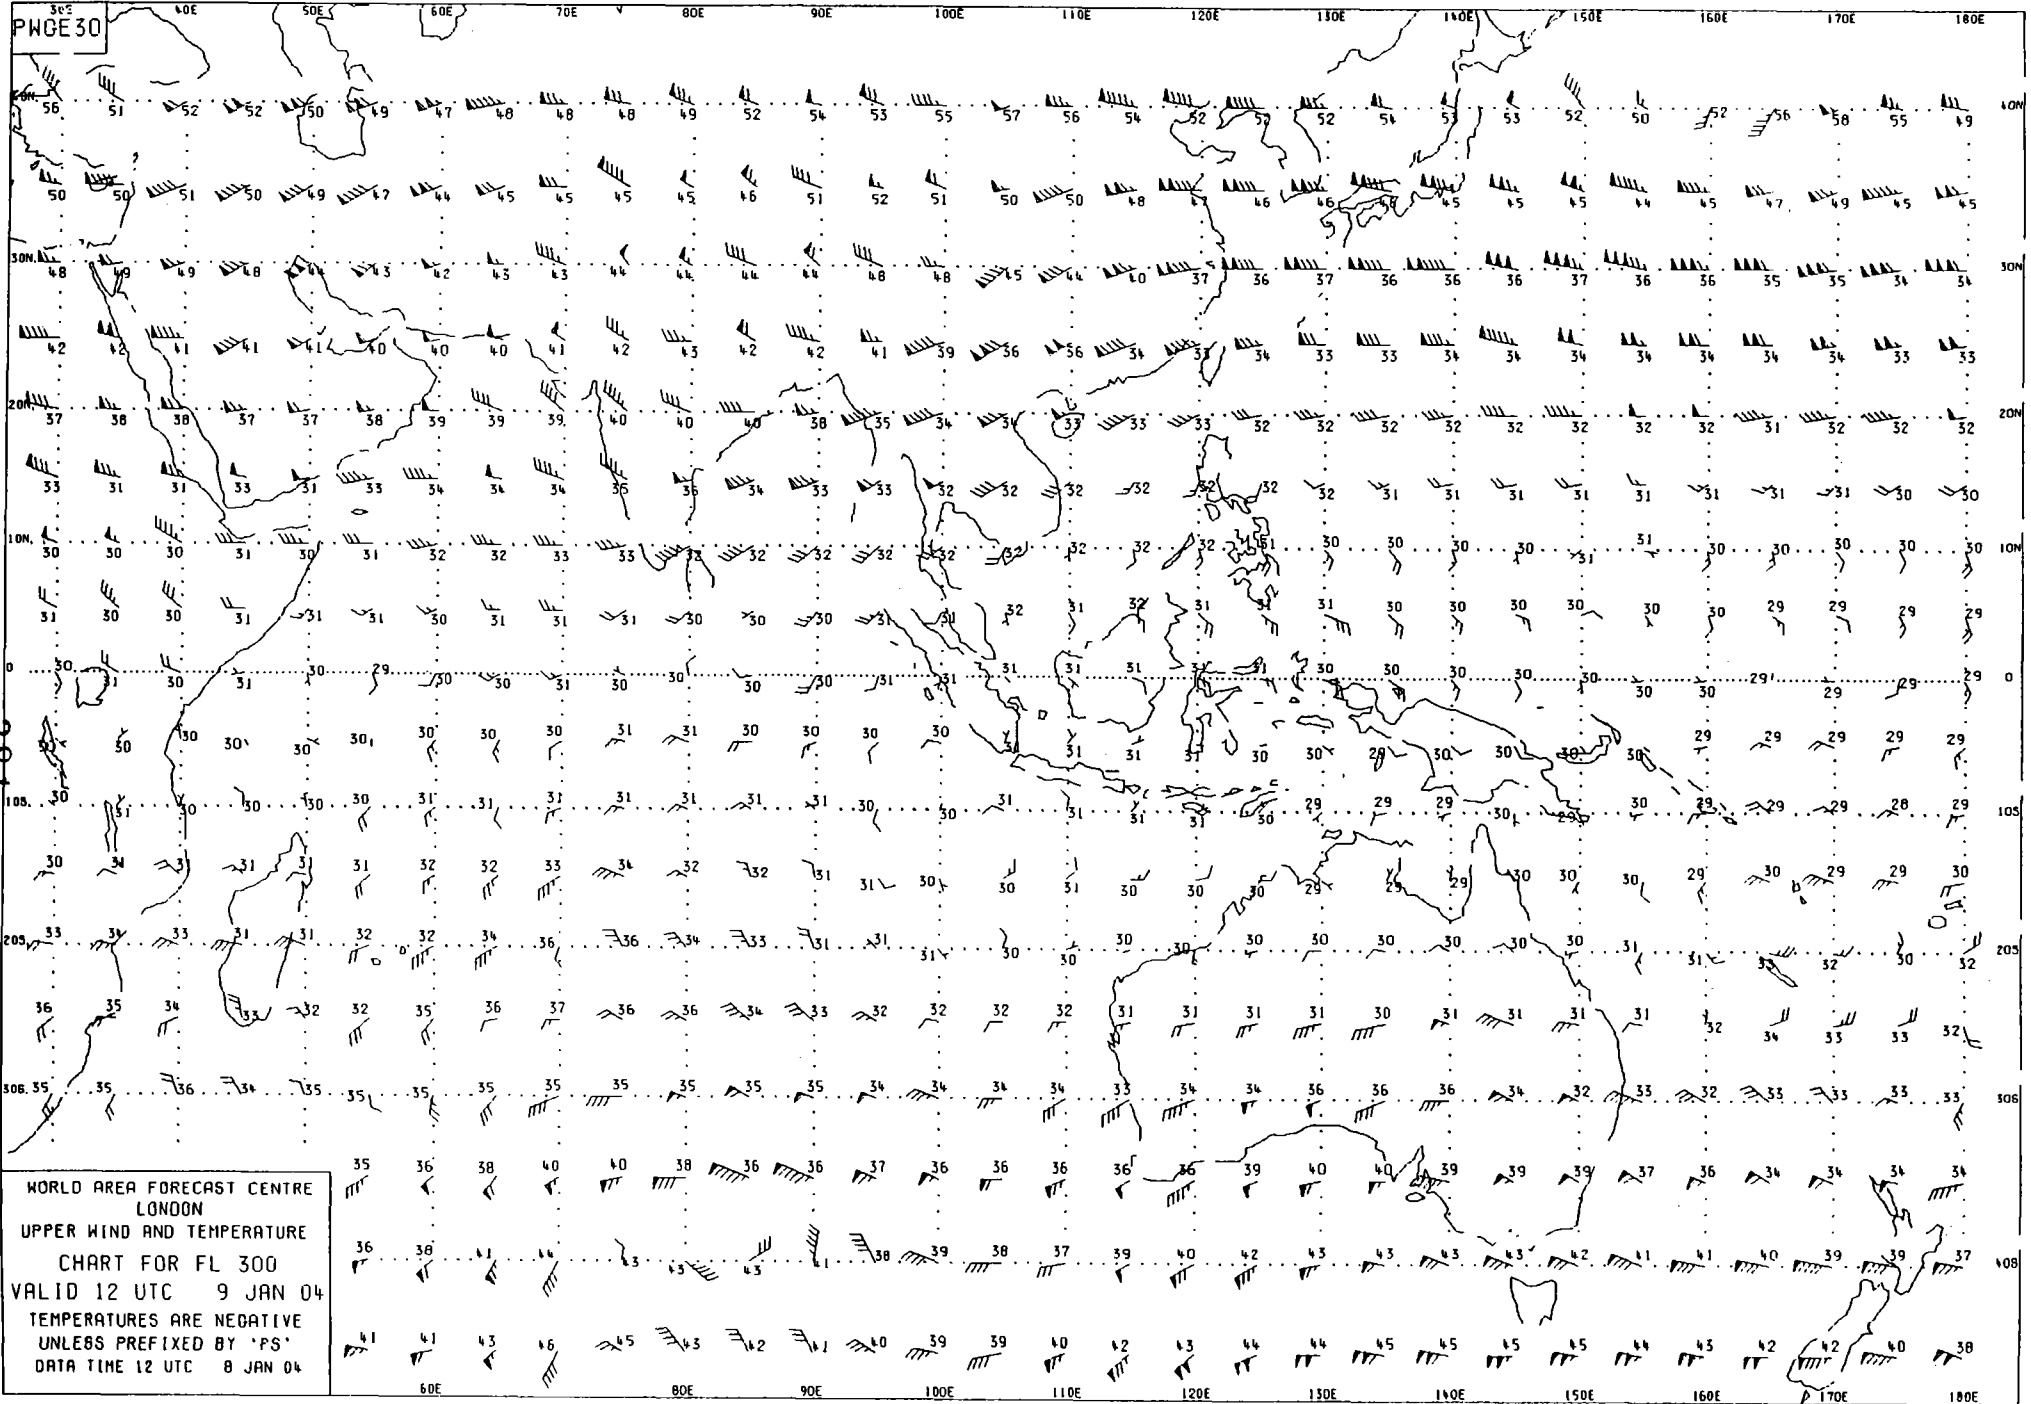 30E 40E 50E 60E 70E 80E 90E 100E 110E 120E 130E 140E 150E 160E 170E 180E
PWGE30
40N 56 51 52 52 50 49 47 48 48 48 49 52 54 53 55 57 56 54 52 52 52 54 53 53 52 50 52 56 58 55 49 40N
50 50 51 50 49 47 44 45 45 45 45 46 51 52 51 50 50 48 47 46 46 46 45 45 45 44 45 47 49 45 45
30N 48 49 49 48 44 43 42 43 43 44 44 44 44 48 48 45 44 40 37 36 37 36 36 36 37 36 36 35 35 34 34 30N
42 42 41 41 41 40 40 40 41 42 43 42 42 41 39 36 36 34 33 34 33 33 34 34 34 34 34 34 34 33 33
20N 37 38 38 37 37 38 39 39 39 40 40 40 38 35 34 34 33 33 33 32 32 32 32 32 32 32 32 31 32 32 32 20N
33 31 31 33 31 33 34 34 34 35 36 34 33 33 32 32 32 32 32 32 32 31 31 31 31 31 31 31 31 30 30
10N 30 30 30 31 31 31 32 32 33 33 32 32 32 32 32 32 32 32 32 31 30 30 30 30 31 31 30 30 30 30 30 10N
31 30 30 31 31 31 30 31 31 31 30 30 30 31 31 32 31 32 31 31 31 30 30 30 30 30 30 29 29 29 29
0 30 31 30 31 30 29 30 30 31 30 30 30 30 31 31 31 31 31 31 31 30 30 30 30 30 30 30 29 29 29 29 0
30 30 30 30 30 30 30 30 30 31 31 30 30 30 30 31 31 31 31 30 30 29 30 30 30 30 29 29 29 29 29
10S 30 31 30 30 30 30 31 31 31 31 31 31 31 30 30 31 31 31 31 30 29 29 29 30 29 30 29 29 29 28 29 10S
30 31 31 31 31 31 32 32 33 34 32 32 31 31 30 30 31 30 30 30 29 29 29 30 30 30 29 30 29 29 30
20S 33 34 33 31 31 32 32 34 36 36 34 33 31 31 31 30 30 30 30 30 30 30 30 30 30 31 31 33 32 30 32 20S
36 35 34 33 32 32 35 36 37 36 36 34 33 32 32 32 32 31 31 31 31 30 31 31 31 31 32 34 33 33 32
30S 35 35 36 34 35 35 35 35 35 35 35 35 35 34 34 34 34 33 34 34 36 36 36 34 32 33 32 33 33 33 33 30S
35 36 38 40 40 38 36 36 37 36 36 36 36 36 39 40 40 39 39 39 37 36 34 34 34 34
36 38 41 44 43 43 43 41 38 39 38 37 39 40 42 43 43 43 43 42 41 41 40 39 39 37 40S
41 41 43 46 45 43 42 41 40 39 39 40 42 43 44 44 45 45 45 45 44 43 42 42 40 38
60E 80E 90E 100E 110E 120E 130E 140E 150E 160E 170E 180E
WORLD AREA FORECAST CENTRE
LONDON
UPPER WIND AND TEMPERATURE
CHART FOR FL 300
VALID 12 UTC 9 JAN 04
TEMPERATURES ARE NEGATIVE
UNLESS PREFIXED BY 'PS'
DATA TIME 12 UTC 8 JAN 04